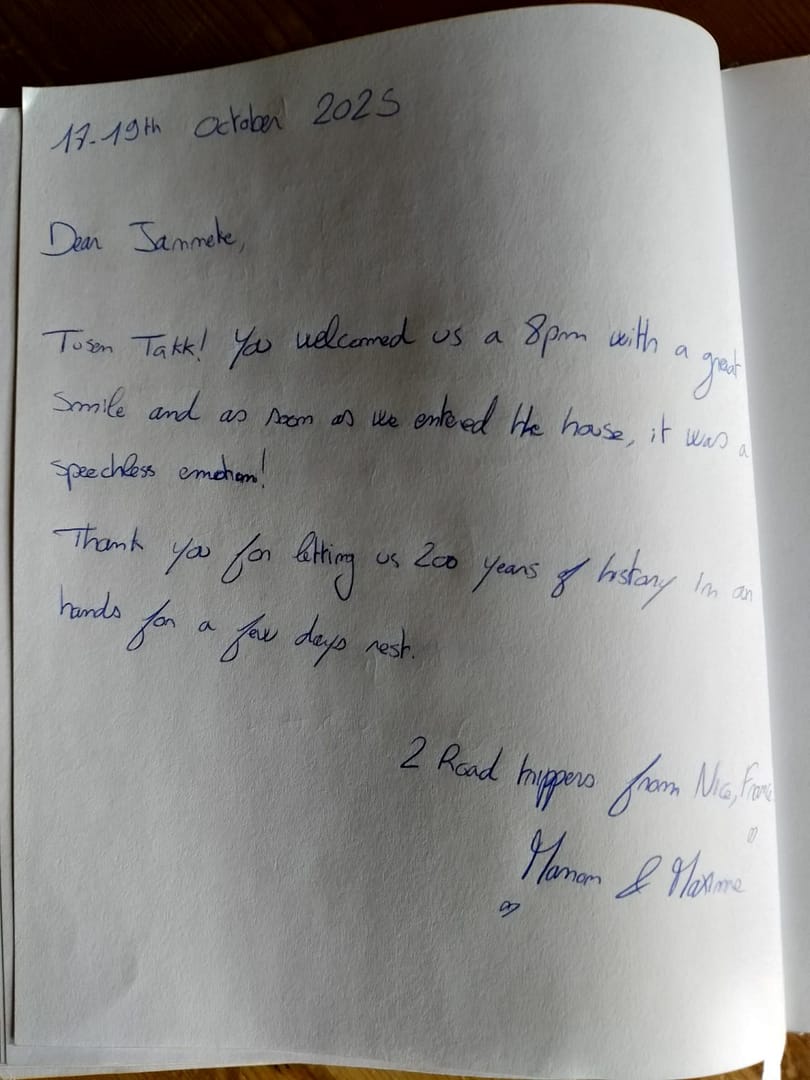 17-19th October 2025
Dear Janneke,
Tusen Takk! You welcomed us a 8pm with a great
smile and as soon as we entered the house, it was a
speechless emotion!
Thank you for letting us 200 years of history in our
hands for a few days rest.
2 Road trippers from Nice, France
Manon & Maxime